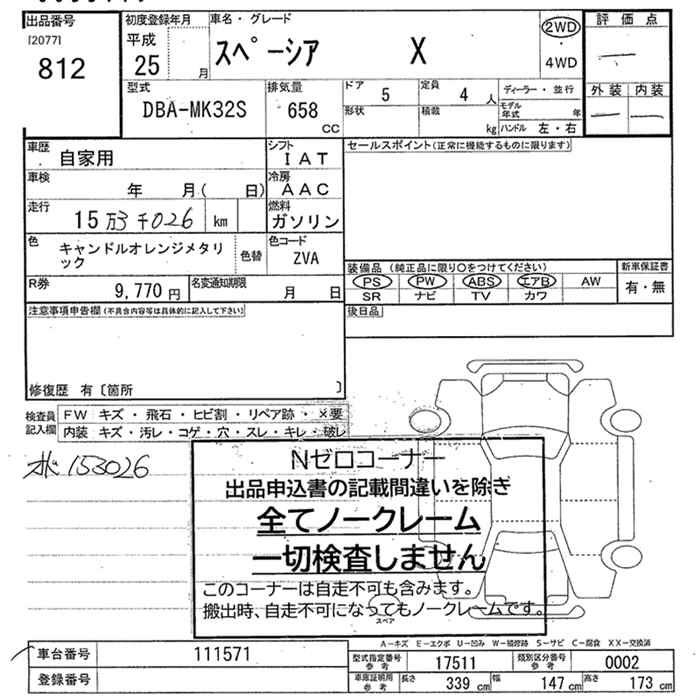 出品番号
[2077]
812
初度登録年月
平成
25 月
車名・グレード
スペーシア X
2WD
・
4WD
評価点
一
外装 内装
一 一
型式
DBA-MK32S
排気量
658
CC
ドア 5
定員 4 人
形状
積載 kg
ディーラー・並行
モデル年式 年
ハンドル 左・右
車歴
自家用
シフト
IAT
車検
年 月( 日)
冷房
AAC
走行
15万3千026 km
燃料
ガソリン
色
キャンドルオレンジメタリ
ック
色替
色コード
ZVA
R券
9,770 円
名変通知期限
月 日
セールスポイント(正常に機能するものに限ります)
装備品 (純正品に限り○をつけてください)
新車保証書
PS PW ABS エアB AW
SR ナビ TV カワ
有・無
後日品
注意事項申告欄(不具合内容等は具体的に記入して下さい)
修復歴 有〔箇所 〕
検査員
記入欄
FW キズ・飛石・ヒビ割・リペア跡・X要
内装 キズ・汚レ・コゲ・穴・スレ・キレ・破レ
153026
Nゼロコーナー
出品申込書の記載間違いを除き
全てノークレーム
一切検査しません
このコーナーは自走不可も含みます。
搬出時、自走不可になってもノークレームです。
スペア
A-キズ E-エクボ U-凹み W-補修跡 S-サビ C-腐食 XX-交換済
車台番号 111571
登録番号
型式指定番号
参考
17511
類別区分番号
参考
0002
車庫証明用
参考
長さ 339 cm
幅 147 cm
高さ 173 cm